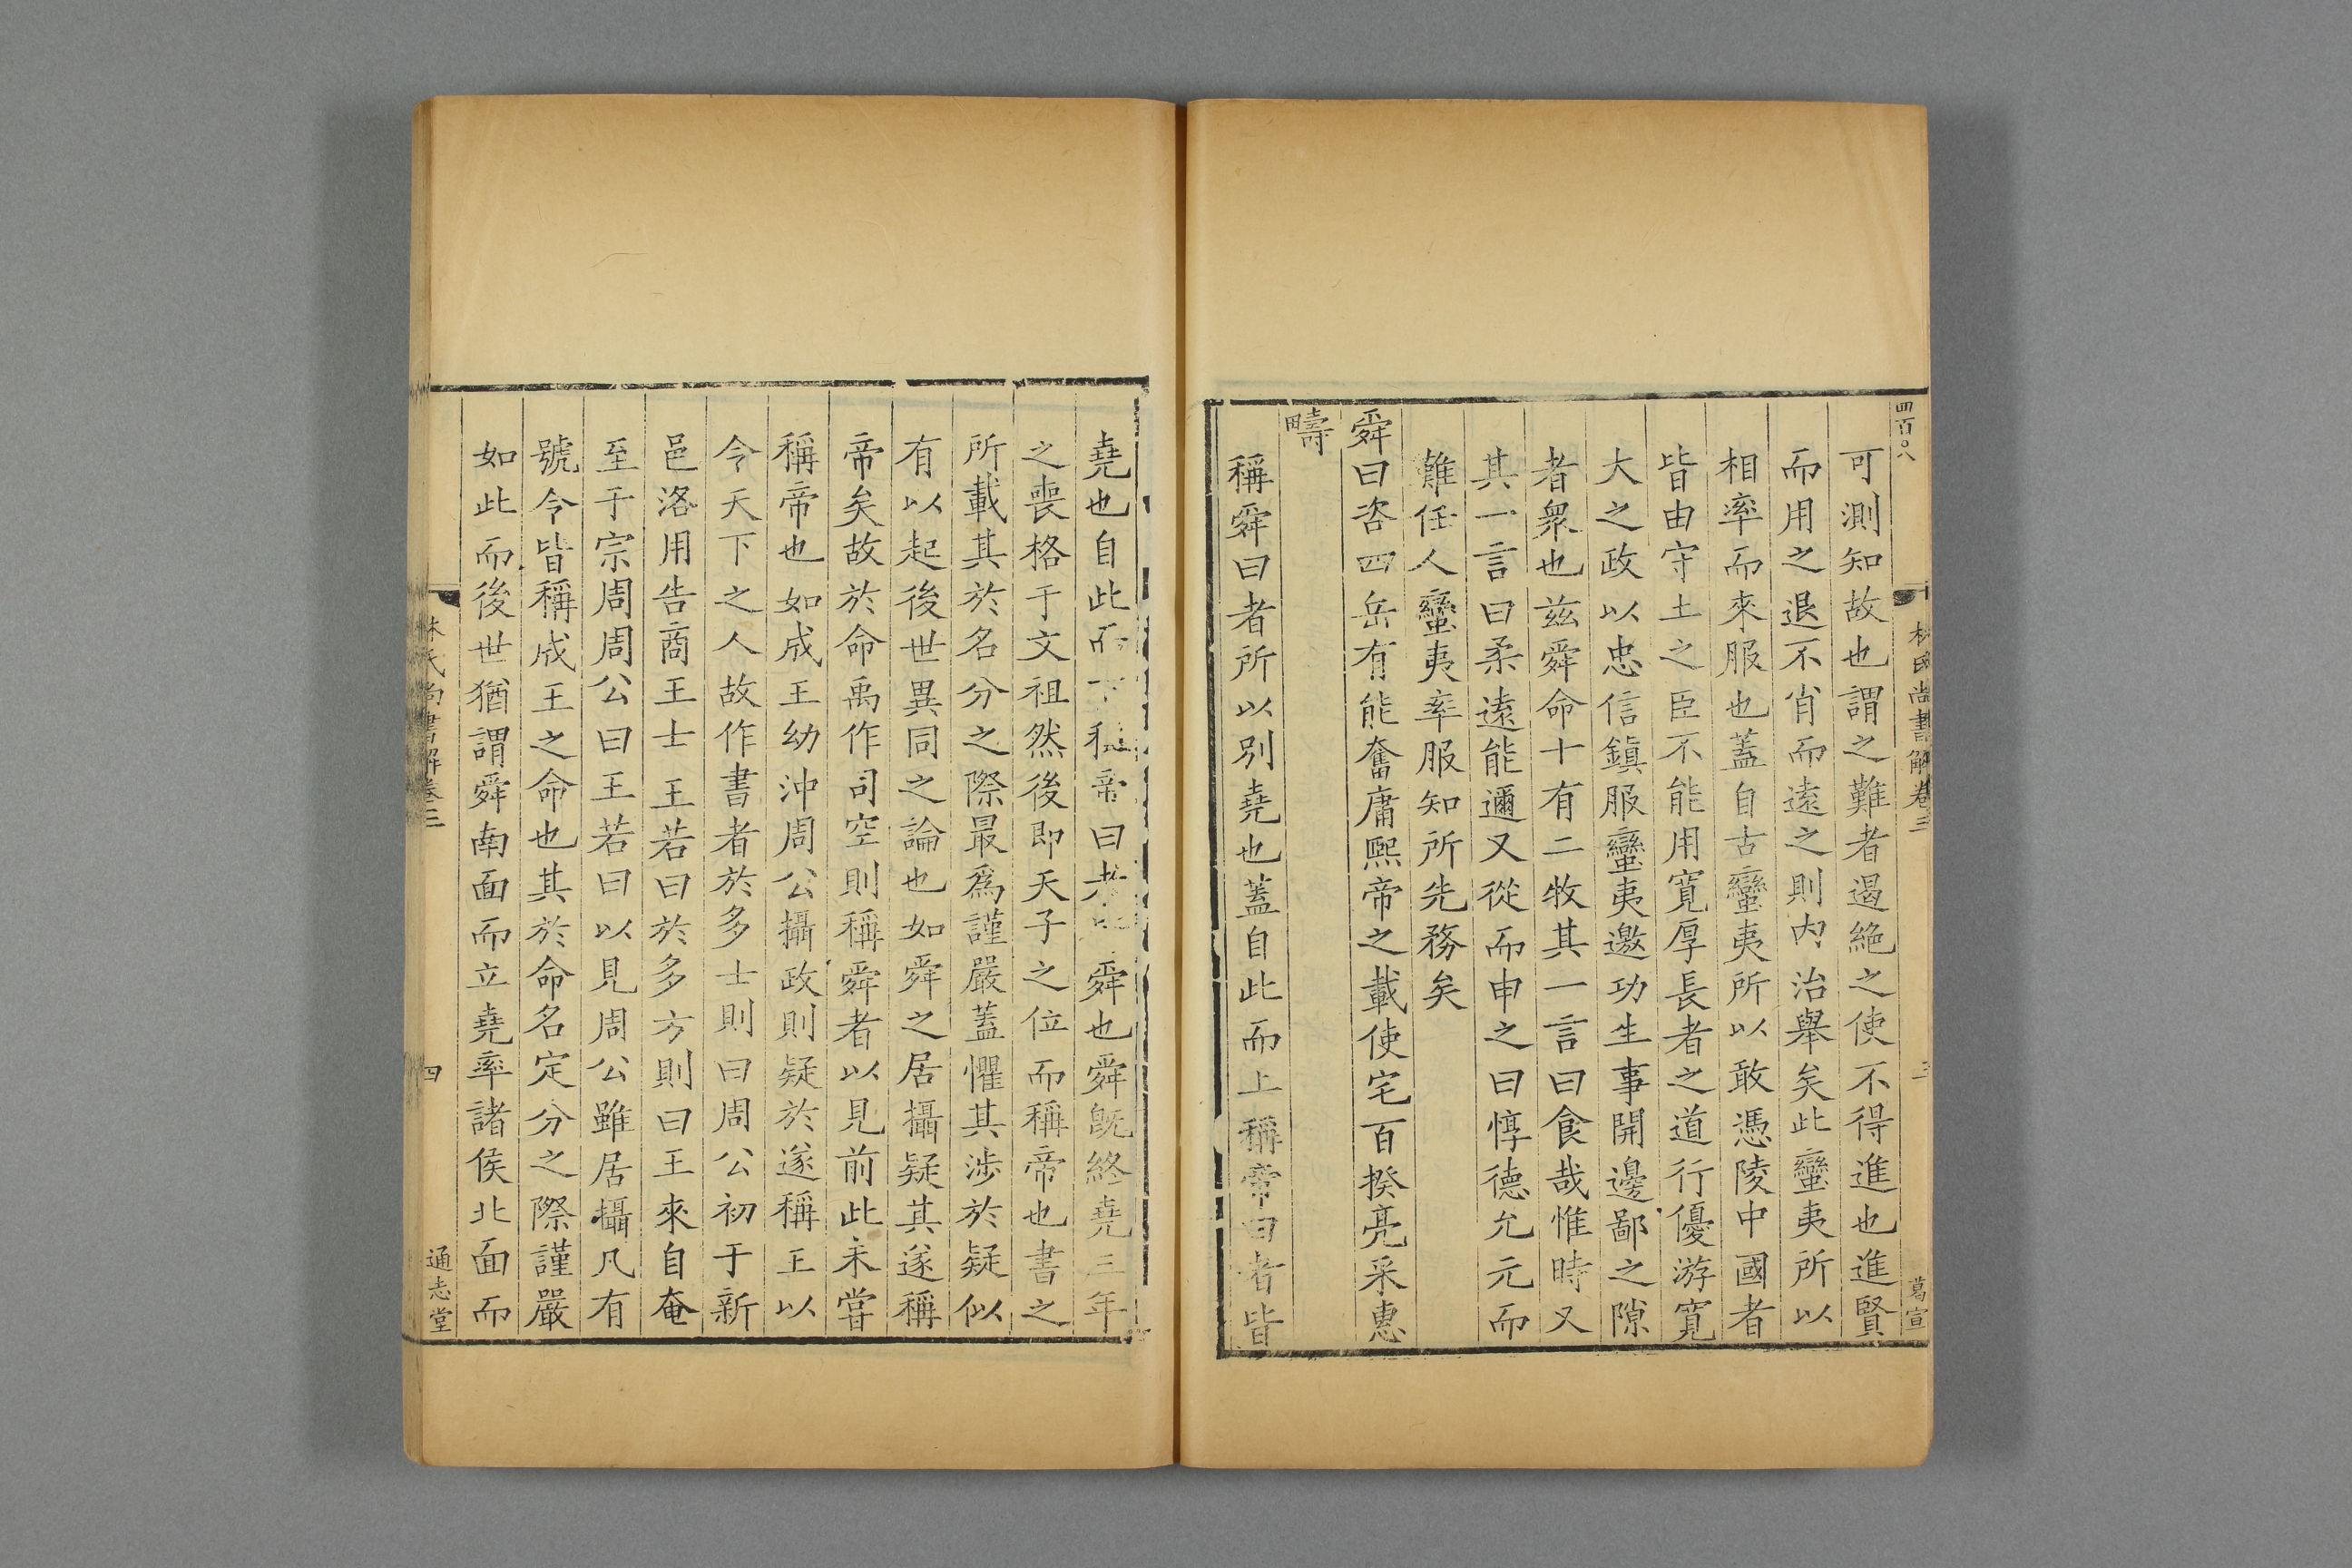 四百○八
林氏尚書解卷三
三
葛宣
可測知故也謂之難者遏絶之使不得進也進賢
而用之退不肖而遠之則内治舉矣此蠻夷所以
相率而來服也蓋自古蠻夷所以敢憑陵中國者
皆由守土之臣不能用寛厚長者之道行優游寛
大之政以忠信鎮服蠻夷邀功生事開邊鄙之隙
者衆也兹舜命十有二牧其一言曰食哉惟時又
其一言曰柔遠能邇又從而申之曰惇德允元而
難任人蠻夷率服知所先務矣
舜曰咨四岳有能奮庸熙帝之載使宅百揆亮采惠
疇
稱舜曰者所以別堯也蓋自此而上稱帝曰者皆
堯也自此而下稱帝曰者 舜也舜旣終堯三年
之喪格于文祖然後即天子之位而稱帝也書之
所載其於名分之際最爲謹嚴蓋懼其涉於疑似
有以起後世異同之論也如舜之居攝疑其遂稱
帝矣故於命禹作司空則稱舜者以見前此未甞
稱帝也如成王幼沖周公攝政則疑於遂稱王以
令天下之人故作書者於多士則曰周公初于新
邑洛用告商王士王若曰於多方則曰王來自奄
至于宗周周公曰王若曰以見周公雖居攝凡有
號令皆稱成王之命也其於命名定分之際謹嚴
如此而後世猶謂舜南面而立堯率諸侯北面而
林氏尚書解卷三
四
通志堂